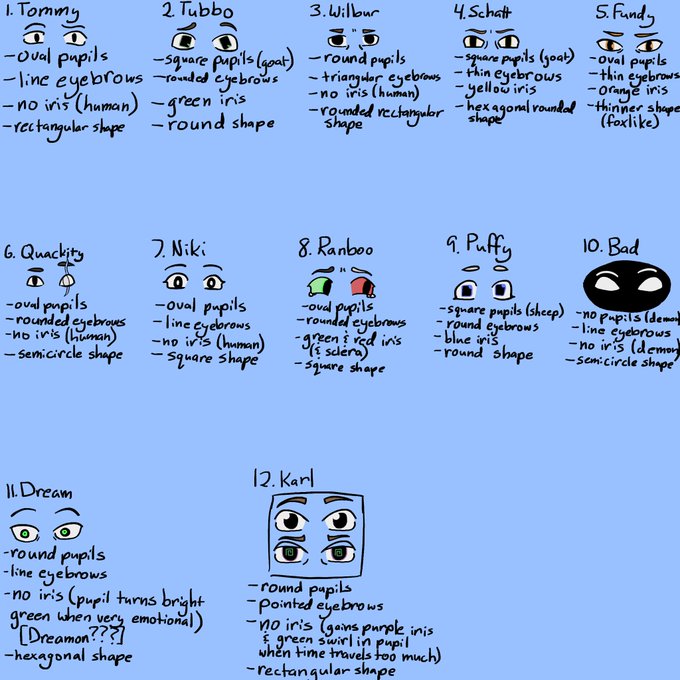 1. Tommy
-oval pupils
-line eyebrows
-no iris (human)
-rectangular shape
2. Tubbo
-square pupils (goat)
-rounded eyebrows
-green iris
-round shape
3. Wilbur
-round pupils
-triangular eyebrows
-no iris (human)
-rounded rectangular
shape
4. Schatt
-square pupils (goat)
-thin eyebrows
-yellow iris
-hexagonal rounded
shape
5. Fundy
-oval pupils
-thin eyebrows
-orange iris
-thinner shape
(foxlike)
6. Quackity
-oval pupils
-rounded eyebrows
-no iris (human)
-semicircle shape
7. Niki
-oval pupils
-line eyebrows
-no iris (human)
-square shape
8. Ranboo
-oval pupils
-rounded eyebrows
-green & red iris
(& sclera)
-square shape
9. Puffy
-square pupils (sheep)
-round eyebrows
-blue iris
-round shape
10. Bad
-no pupils (demon)
-line eyebrows
-no iris (demon)
-semicircle shape
11. Dream
-round pupils
-line eyebrows
-no iris (pupil turns bright
green when very emotional)
[Dreamon???]
-hexagonal shape
12. Karl
-round pupils
-pointed eyebrows
-no iris (gains purple iris
& green swirl in pupil
when time travels too much)
-rectangular shape